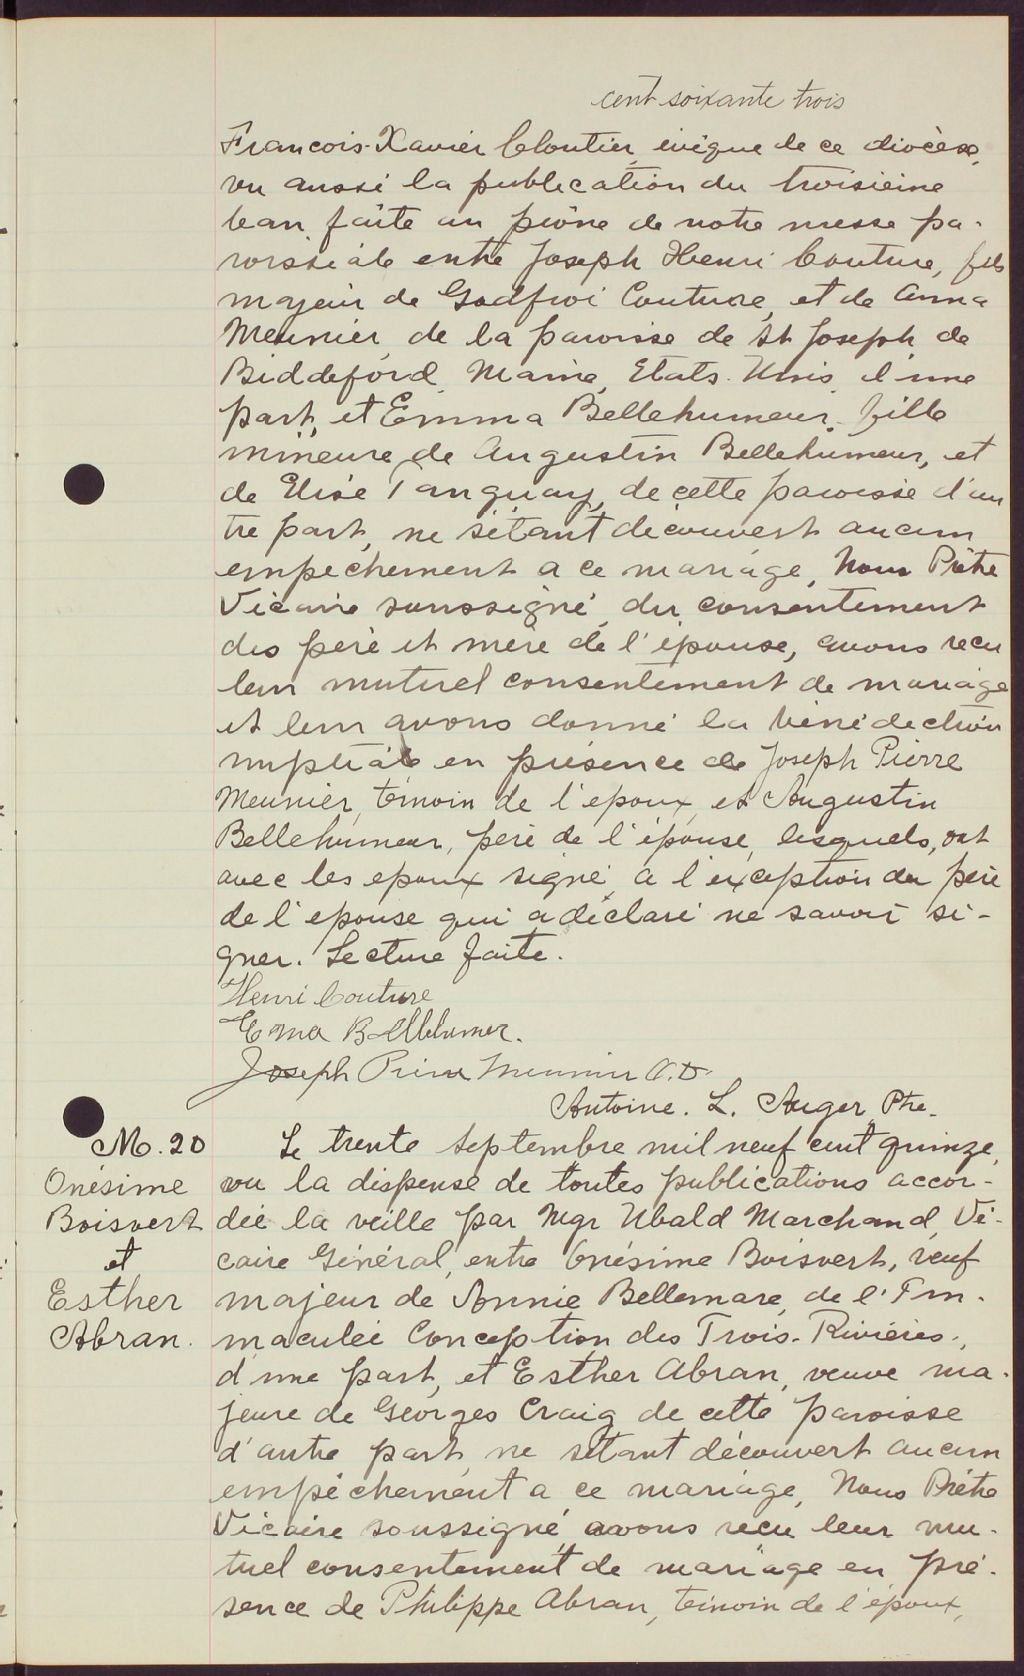 cent soixante trois
Francois-Xavier Cloutier, évêque de ce diocèse,
vu aussi la publication du troisième
ban faite au prône de notre messe pa-
roissiale entre Joseph Henri Couture, fils
majeur de Godfroi Couture, et de Anna
Meunier, de la paroisse de St Joseph de
Biddeford, Maine, Etats-Unis, d'une
part, et Emma Bellehumeur, fille
mineure de Augustin Bellehumeur, et
de Elise Tanguay, de cette paroisse d'au
tre part, ne s'étant découvert aucun
empêchement a ce mariage, Nous Prêtre
Vicaire soussigné, du consentement
des père et mère de l'épouse, avons recu
leur mutuel consentement de mariage
et leur avons donné la bénédiction
nuptiale en présence de Joseph Pierre
Meunier, témoin de l'epoux, et Augustin
Bellehumeur, père de l'épouse, lesquels, ont
avec les epoux signé, a l'exception du père
de l'epouse qui a déclaré ne savoir si-
gner. Lecture faite.
Henri Couture
Ema Bellehumer.
Joseph Meunier
Antoine. L. Auger, Ptre.
M. 20
Onésime
Boisvert
et
Esther
Abran.
Le trente Septembre mil neuf cent quinze,
vu la dispense de toutes publications accor-
dée la veille par Mgr Ubald Marchand, Vi-
caire Général, entre Onésime Boisvert, veuf
majeur de Annie Bellemare, de l'Im-
maculée Conception des Trois-Rivières,
d'une part, et Esther Abran, veuve ma-
jeure de Georges Craig de cette paroisse
d'autre part, ne s'étant découvert aucun
empêchement a ce mariage, Nous Prêtre
Vicaire soussigné avons recu leur mu-
tuel consentement de mariage en pré-
sence de Philippe Abran, témoin de l'époux,